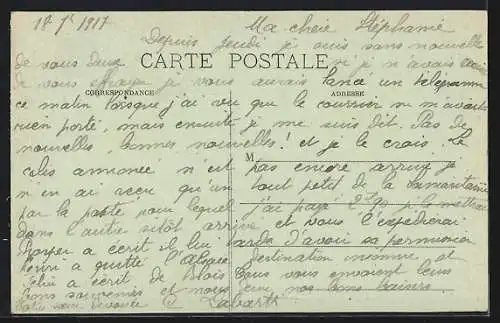 18 7re 1917
Ma chère Stéphanie
Depuis jeudi je suis sans nouvelle
de vous deux si je n'avais
CARTE POSTALE
de vous effrayer je vous aurais lancé un télégramme
CORRESPONDANCE ADRESSE
ce matin lorsque j'ai vu que le courrier ne m'avait
rien porté, mais ensuite je me suis dit. Pas de
nouvelles, bonnes nouvelles! et je le crois. Le
M
colis annoncé n'est pas encore arrivé je
n'en ai reçu qu'un tout petit de la Samaritaine
par la poste pour lequel j'ai payé
dans l'autre sitôt arrivé et vous l'expédierai
a écrit il lui tarde d'avoir sa permission
Henri a quitté l'Alsace destination inconnue et
a écrit de Blois Tous vous envoient leurs
bons souvenirs et nous deux, nos bons baisers.
Labarts